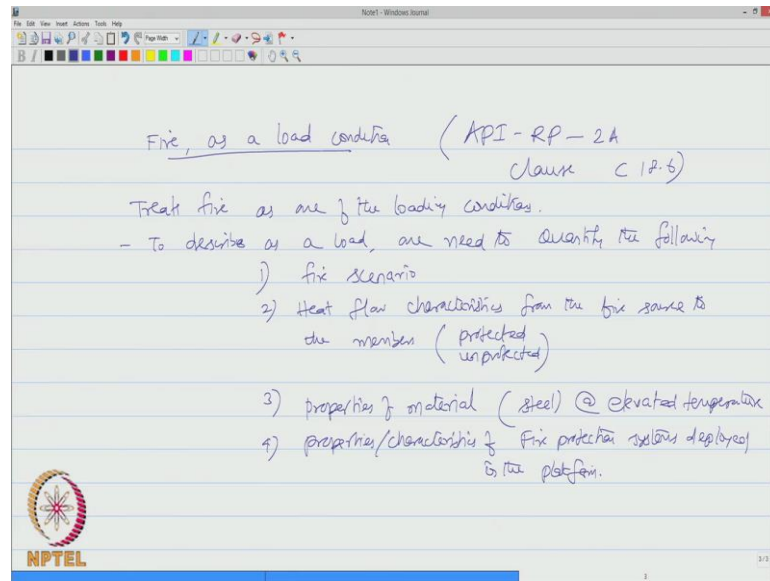 Note1 - Windows Journal
File Edit View Insert Actions Tools Help
Page Width
B I
Fire, as a load condition (API-RP-2A
Clause C18.6)
Treat fire as one of the loading conditions.
- To describe as a load, one need to Quantify the following
1) fire scenario
2) Heat flow characteristics from the fire source to
the member (protected
unprotected)
3) properties of material (steel) @ elevated temperature
4) properties/characteristics of Fire protection systems deployed
in the platform.
NPTEL
3/3
3